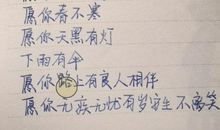 愿你春不寒
愿你天黑有灯
下雨有伞
愿你路上有良人相伴
愿你无疾无忧有岁安生不离笑